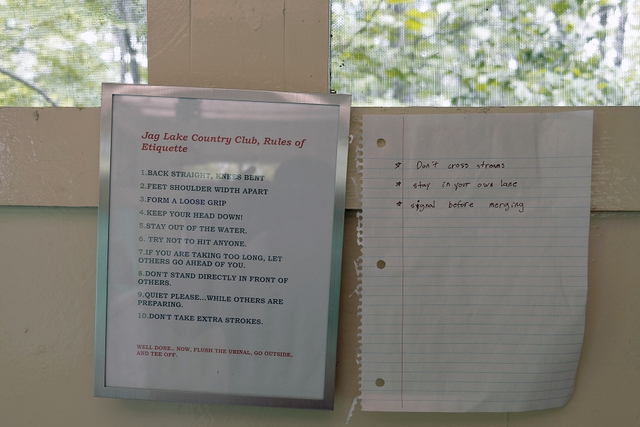 Jag Lake Country Club, Rules of
Etiquette
1.BACK STRAIGHT, KNEES BENT
2.FEET SHOULDER WIDTH APART
3.FORM A LOOSE GRIP
4.KEEP YOUR HEAD DOWN!
5.STAY OUT OF THE WATER.
6. TRY NOT TO HIT ANYONE.
7.IF YOU ARE TAKING TOO LONG, LET
OTHERS GO AHEAD OF YOU.
8.DON'T STAND DIRECTLY IN FRONT OF
OTHERS.
9.QUIET PLEASE...WHILE OTHERS ARE
PREPARING.
10.DON'T TAKE EXTRA STROKES.
WELL DONE.. NOW, FLUSH THE URINAL, GO OUTSIDE,
AND TEE OFF.
* Don't cross streams
* stay in your own lane
* signal before merging